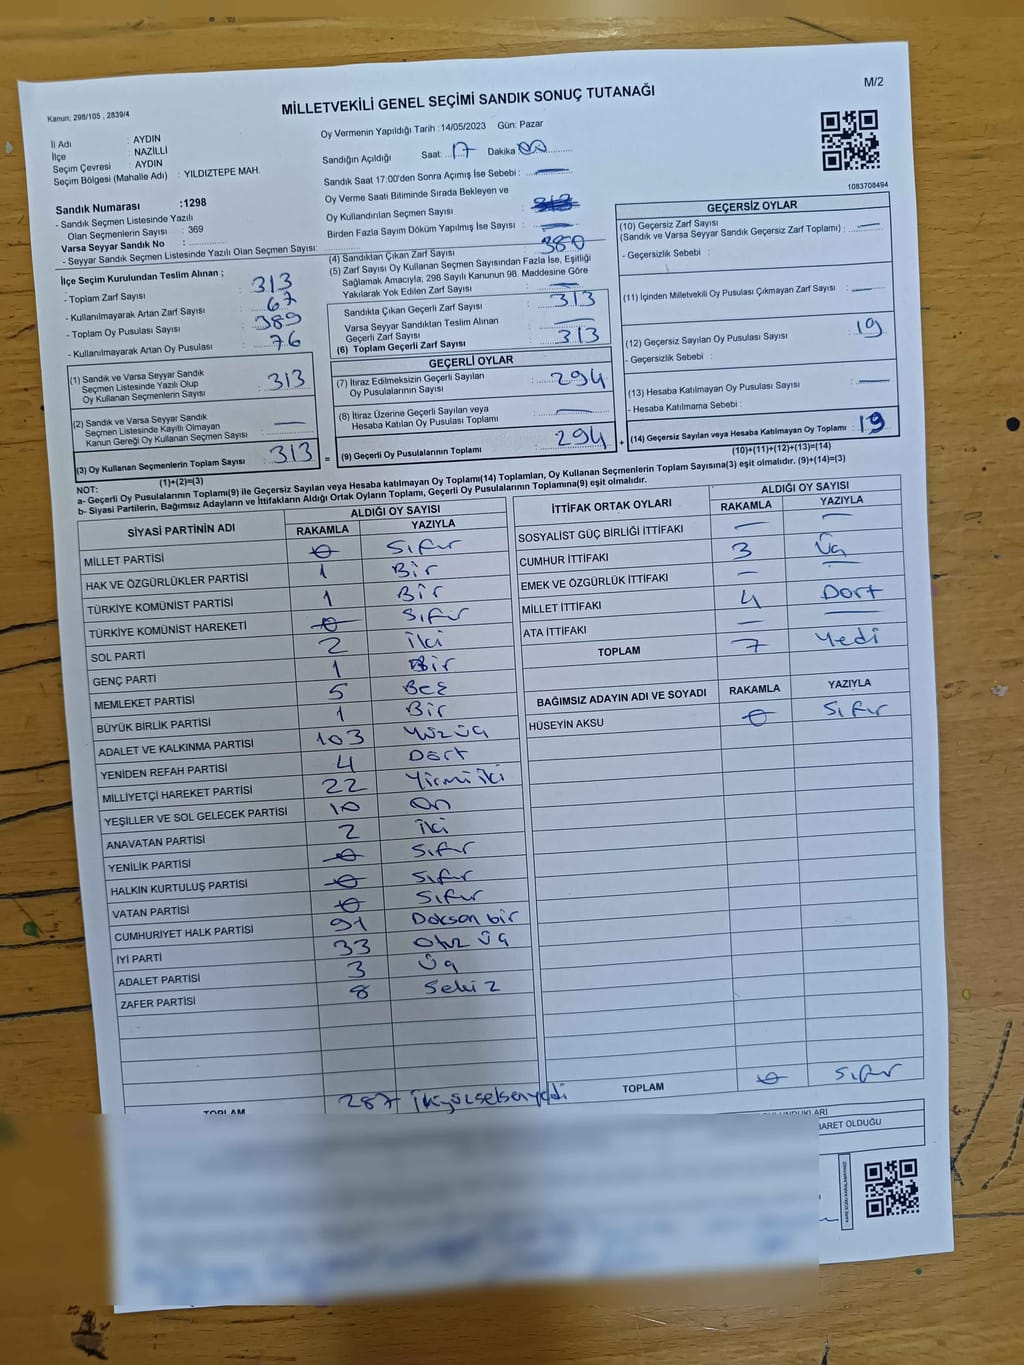 Kanun; 298/105 , 2839/4
MİLLETVEKİLİ GENEL SEÇİMİ SANDIK SONUÇ TUTANAĞI
M/2
İl Adı : AYDIN
İlçe : NAZİLLİ
Seçim Çevresi : AYDIN
Seçim Bölgesi (Mahalle Adı) : YILDIZTEPE MAH.
Oy Vermenin Yapıldığı Tarih :14/05/2023 Gün: Pazar
Sandığın Açıldığı Saat: 17 Dakika 00
Sandık Saat 17:00'den Sonra Açımış İse Sebebi : —
Oy Verme Saati Bitiminde Sırada Bekleyen ve
Oy Kullandırılan Seçmen Sayısı :
Birden Fazla Sayım Döküm Yapılmış İse Sayısı : —
1083708494
Sandık Numarası :1298
- Sandık Seçmen Listesinde Yazılı
Olan Seçmenlerin Sayısı : 369
Varsa Seyyar Sandık No :
- Seyyar Sandık Seçmen Listesinde Yazılı Olan Seçmen Sayısı:
İlçe Seçim Kurulundan Teslim Alınan ;
- Toplam Zarf Sayısı : 380
- Kullanılmayarak Artan Zarf Sayısı : 67
- Toplam Oy Pusulası Sayısı : 389
- Kullanılmayarak Artan Oy Pusulası : 76
(1) Sandık ve Varsa Seyyar Sandık
Seçmen Listesinde Yazılı Olup
Oy Kullanan Seçmenlerin Sayısı : 313
(2) Sandık ve Varsa Seyyar Sandık
Seçmen Listesinde Kayıtlı Olmayan
Kanun Gereği Oy Kullanan Seçmen Sayısı : —
(3) Oy Kullanan Seçmenlerin Toplam Sayısı : 313
(1)+(2)=(3)
(4) Sandıktan Çıkan Zarf Sayısı : 313
(5) Zarf Sayısı Oy Kullanan Seçmen Sayısından Fazla İse, Eşitliği
Sağlamak Amacıyla; 298 Sayılı Kanunun 98. Maddesine Göre
Yakılarak Yok Edilen Zarf Sayısı : —
Sandıkta Çıkan Geçerli Zarf Sayısı : 313
Varsa Seyyar Sandıktan Teslim Alınan
Geçerli Zarf Sayısı : —
(6) Toplam Geçerli Zarf Sayısı : 313
GEÇERLİ OYLAR
(7) İtiraz Edilmeksizin Geçerli Sayılan
Oy Pusulalarının Sayısı : 294
(8) İtiraz Üzerine Geçerli Sayılan veya
Hesaba Katılan Oy Pusulası Toplamı : —
= (9) Geçerli Oy Pusulalarının Toplamı : 294
GEÇERSİZ OYLAR
(10) Geçersiz Zarf Sayısı
(Sandık ve Varsa Seyyar Sandık Geçersiz Zarf Toplamı) : —
- Geçersizlik Sebebi :
(11) İçinden Milletvekili Oy Pusulası Çıkmayan Zarf Sayısı : —
(12) Geçersiz Sayılan Oy Pusulası Sayısı : 19
- Geçersizlik Sebebi :
(13) Hesaba Katılmayan Oy Pusulası Sayısı : —
- Hesaba Katılmama Sebebi :
+ (14) Geçersiz Sayılan veya Hesaba Katılmayan Oy Toplamı : 19
(10)+(11)+(12)+(13)=(14)
NOT:
a- Geçerli Oy Pusulalarının Toplamı(9) ile Geçersiz Sayılan veya Hesaba katılmayan Oy Toplamı(14) Toplamları, Oy Kullanan Seçmenlerin Toplam Sayısına(3) eşit olmalıdır. (9)+(14)=(3)
b- Siyasi Partilerin, Bağımsız Adayların ve İttifakların Aldığı Ortak Oyların Toplamı, Geçerli Oy Pusulalarının Toplamına(9) eşit olmalıdır.
SİYASİ PARTİNİN ADI ALDIĞI OY SAYISI
RAKAMLA YAZIYLA
MİLLET PARTİSİ 0 Sıfır
HAK VE ÖZGÜRLÜKLER PARTİSİ 1 Bir
TÜRKİYE KOMÜNİST PARTİSİ 1 Bir
TÜRKİYE KOMÜNİST HAREKETİ 0 Sıfır
SOL PARTİ 2 İki
GENÇ PARTİ 1 Bir
MEMLEKET PARTİSİ 5 Beş
BÜYÜK BİRLİK PARTİSİ 1 Bir
ADALET VE KALKINMA PARTİSİ 103 Yüz üç
YENİDEN REFAH PARTİSİ 4 Dört
MİLLİYETÇİ HAREKET PARTİSİ 22 Yirmi iki
YEŞİLLER VE SOL GELECEK PARTİSİ 10 On
ANAVATAN PARTİSİ 2 İki
YENİLİK PARTİSİ 0 Sıfır
HALKIN KURTULUŞ PARTİSİ 0 Sıfır
VATAN PARTİSİ 0 Sıfır
CUMHURİYET HALK PARTİSİ 91 Doksan bir
İYİ PARTİ 33 Otuz üç
ADALET PARTİSİ 3 Üç
ZAFER PARTİSİ 8 Sekiz
TOPLAM 287 ikiyüzseksenyedi
İTTİFAK ORTAK OYLARI ALDIĞI OY SAYISI
RAKAMLA YAZIYLA
SOSYALİST GÜÇ BİRLİĞİ İTTİFAKI — —
CUMHUR İTTİFAKI 3 Üç
EMEK VE ÖZGÜRLÜK İTTİFAKI — —
MİLLET İTTİFAKI 4 Dört
ATA İTTİFAKI — —
TOPLAM 7 Yedi
BAĞIMSIZ ADAYIN ADI VE SOYADI RAKAMLA YAZIYLA
HÜSEYİN AKSU 0 Sıfır
TOPLAM 0 Sıfır
ARET OLDUĞU